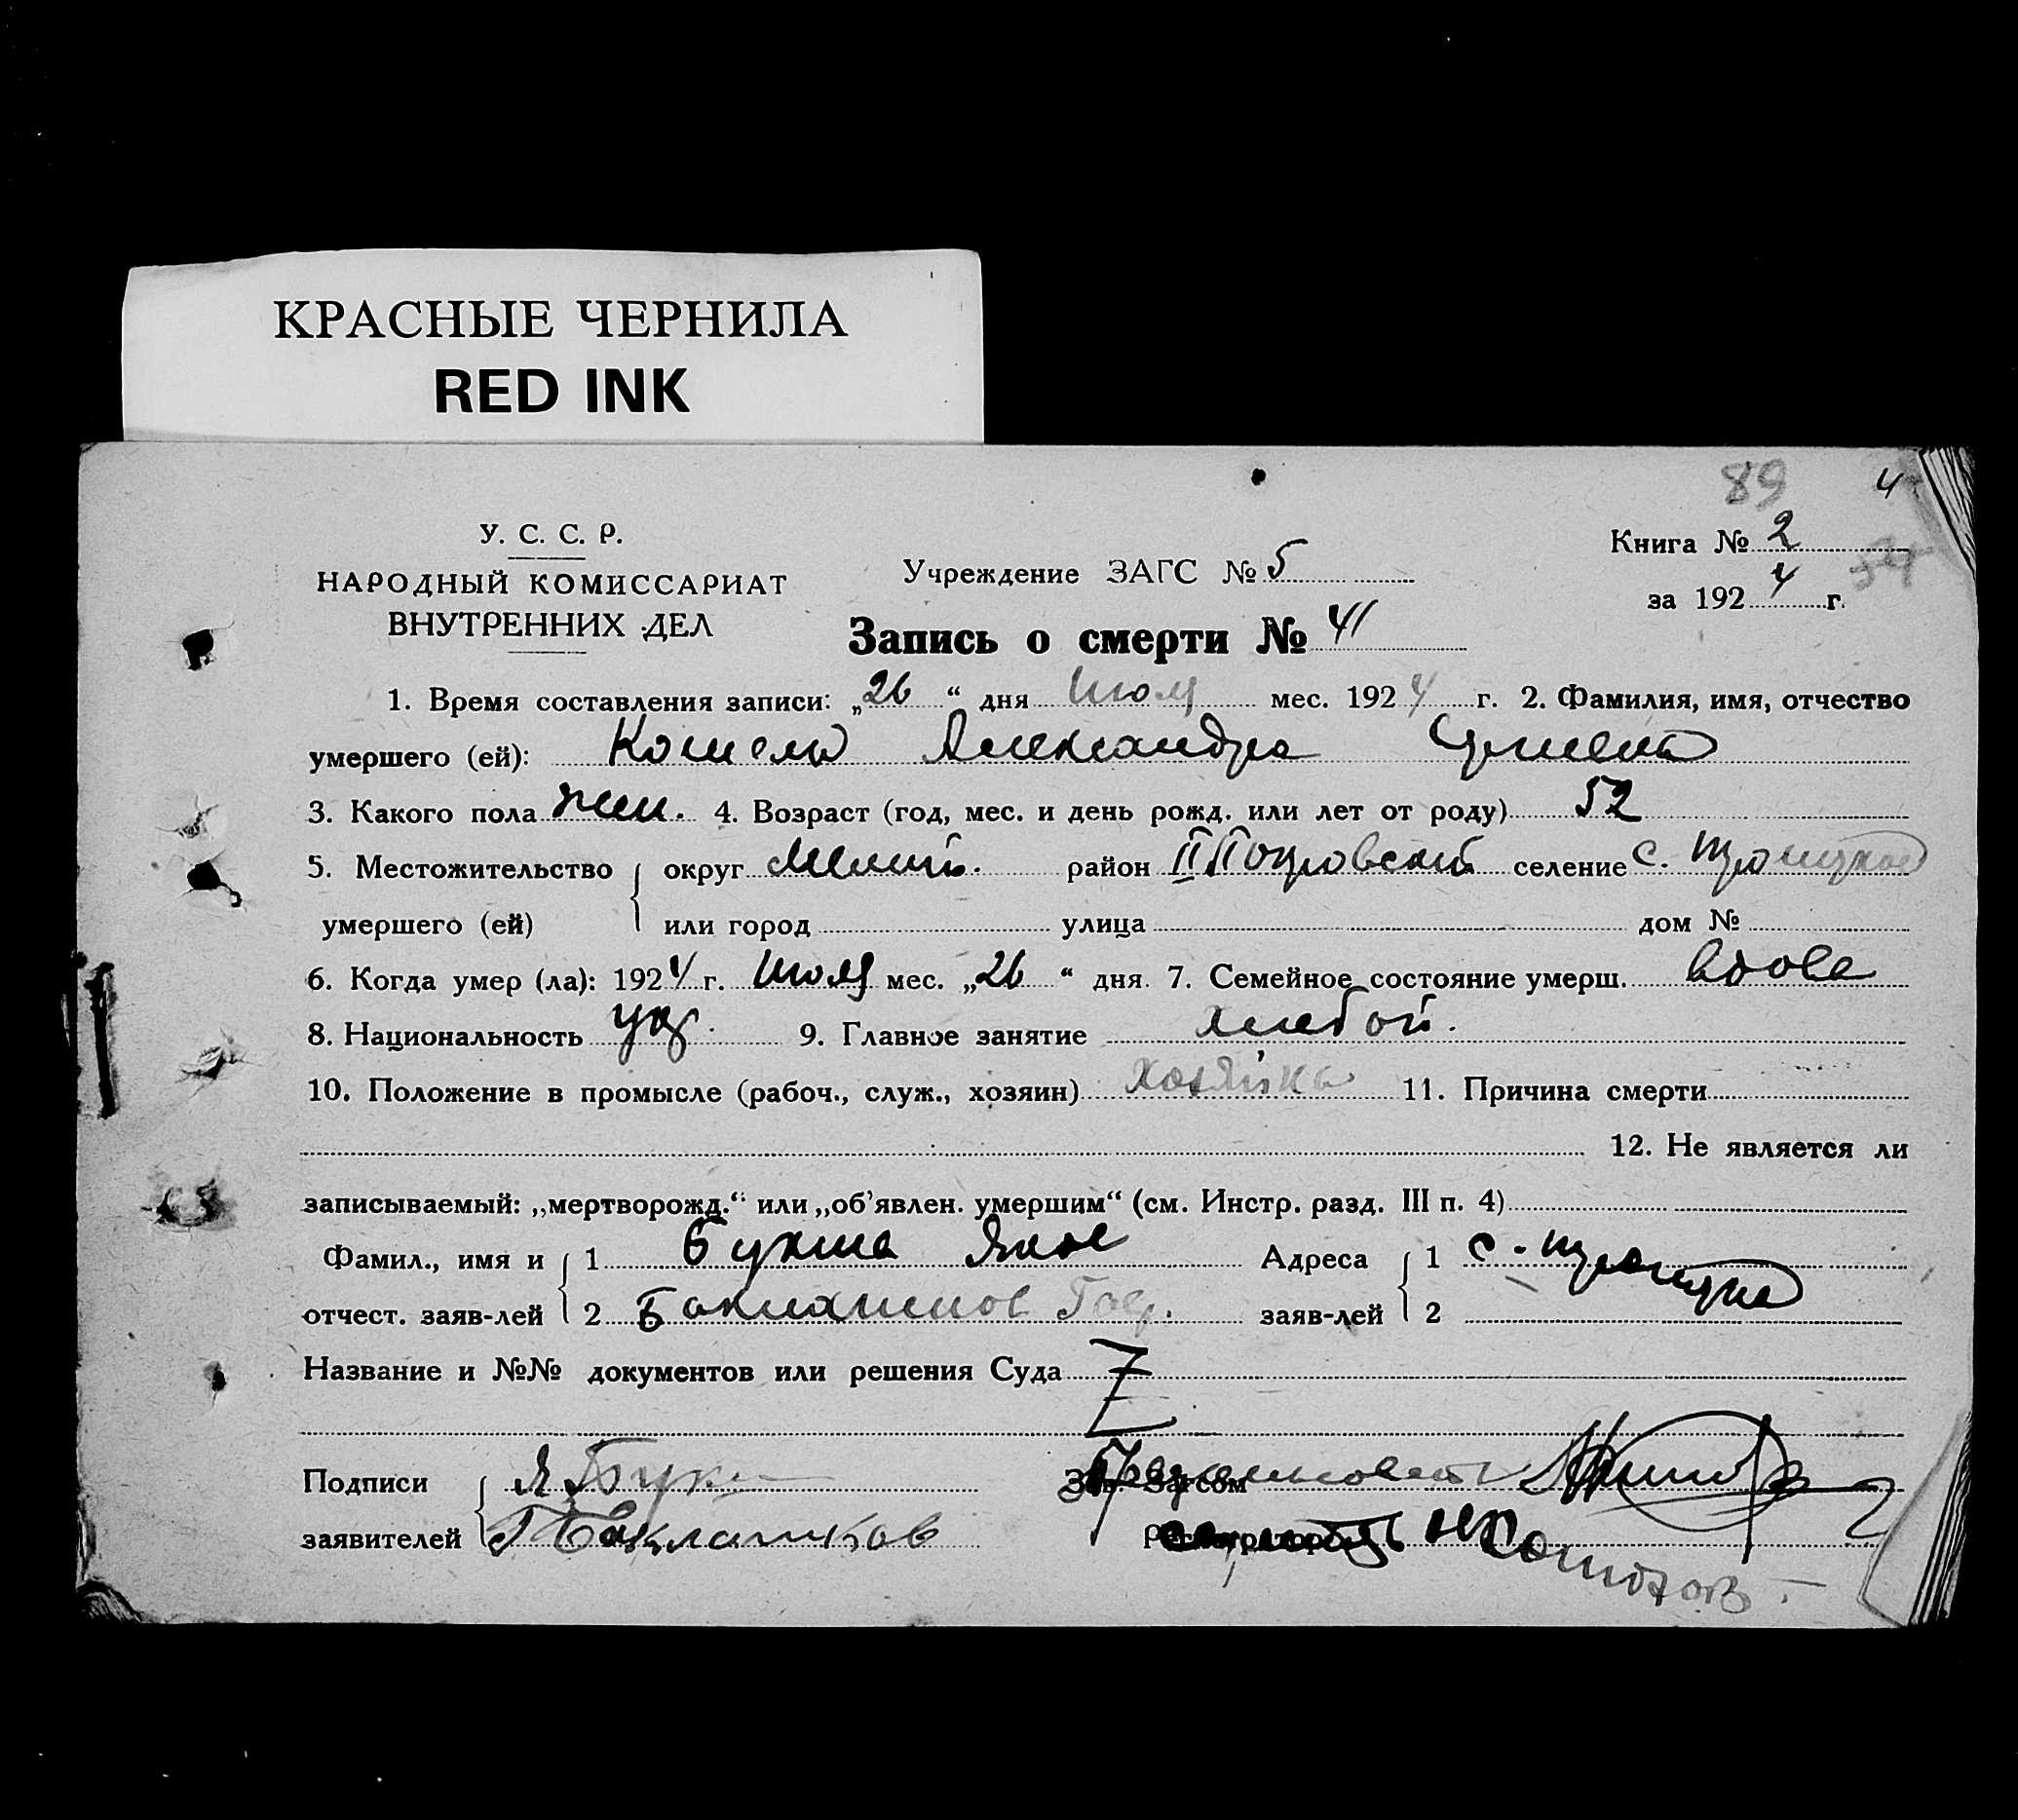 КРАСНЫЕ ЧЕРНИЛА
RED INK
89 4
У. С. С. Р.
НАРОДНЫЙ КОМИССАРИАТ
ВНУТРЕННИХ ДЕЛ
Учреждение ЗАГС № 5
Книга № 2
за 1924 г.
Запись о смерти № 41
1. Время составления записи: „26“ дня Июля мес. 1924 г. 2. Фамилия, имя, отчество
умершего (ей): Кошель Александра
3. Какого пола жен. 4. Возраст (год, мес. и день рожд. или лет от роду) 52
5. Местожительство округ Мелит. район II Покровский селение с.
умершего (ей) или город улица дом №
6. Когда умер (ла): 1924 г. Июля мес. „26“ дня 7. Семейное состояние умерш. вдова
8. Национальность укр. 9. Главное занятие хлебоп.
10. Положение в промысле (рабоч., служ., хозяин) хозяйка 11. Причина смерти
12. Не является ли
записываемый: „мертворожд.“ или „об’явлен. умершим“ (см. Инстр. разд. III п. 4)
Фамил., имя и 1 Букша Яков Адреса 1 с.
отчест. заяв-лей 2 Баклашков заяв-лей 2
Название и №№ документов или решения Суда
Подписи Я Букша Зав. Загсом
заявителей Г Баклашков